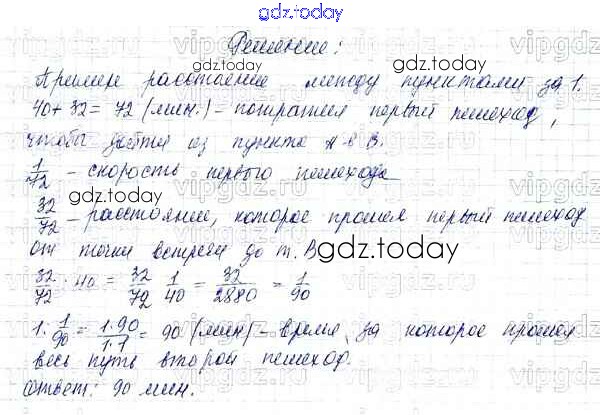 gdz.today
Решение:
Примем расстояние между пунктами за 1.
gdz.today
40+32=72 (мин.) - потратил первый пешеход,
чтобы дойти из пункта А в В.
1/72 - скорость первого пешехода
gdz.today
32/72 - расстояние, которое прошел первый пешеход
от точки встречи до т. В
gdz.today
32/72 : 40 = 32/72 · 1/40 = 32/2880 = 1/90
1 : 1/90 = 1·90/1·1 = 90 (мин) - время, за которое прошел
весь путь второй пешеход.
Ответ: 90 мин.
gdz.today